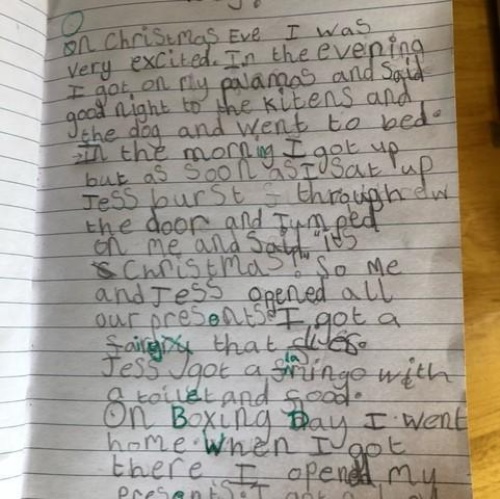 On Christmas Eve I was
very excited. In the evening
I got on my palamas and said
good night to the kitens and
the dog and went to bed.
In the morning I got up
but as soon as I sat up
Jess burst through
the door and Jumped
on me and said "its
Christmas". So me
and Jess opened all
our presents. I got a
fairgy that flies.
Jess got a flamingo with
a toilet and food.
On Boxing Day I went
home. When I got
there I opened my
presents. I got a